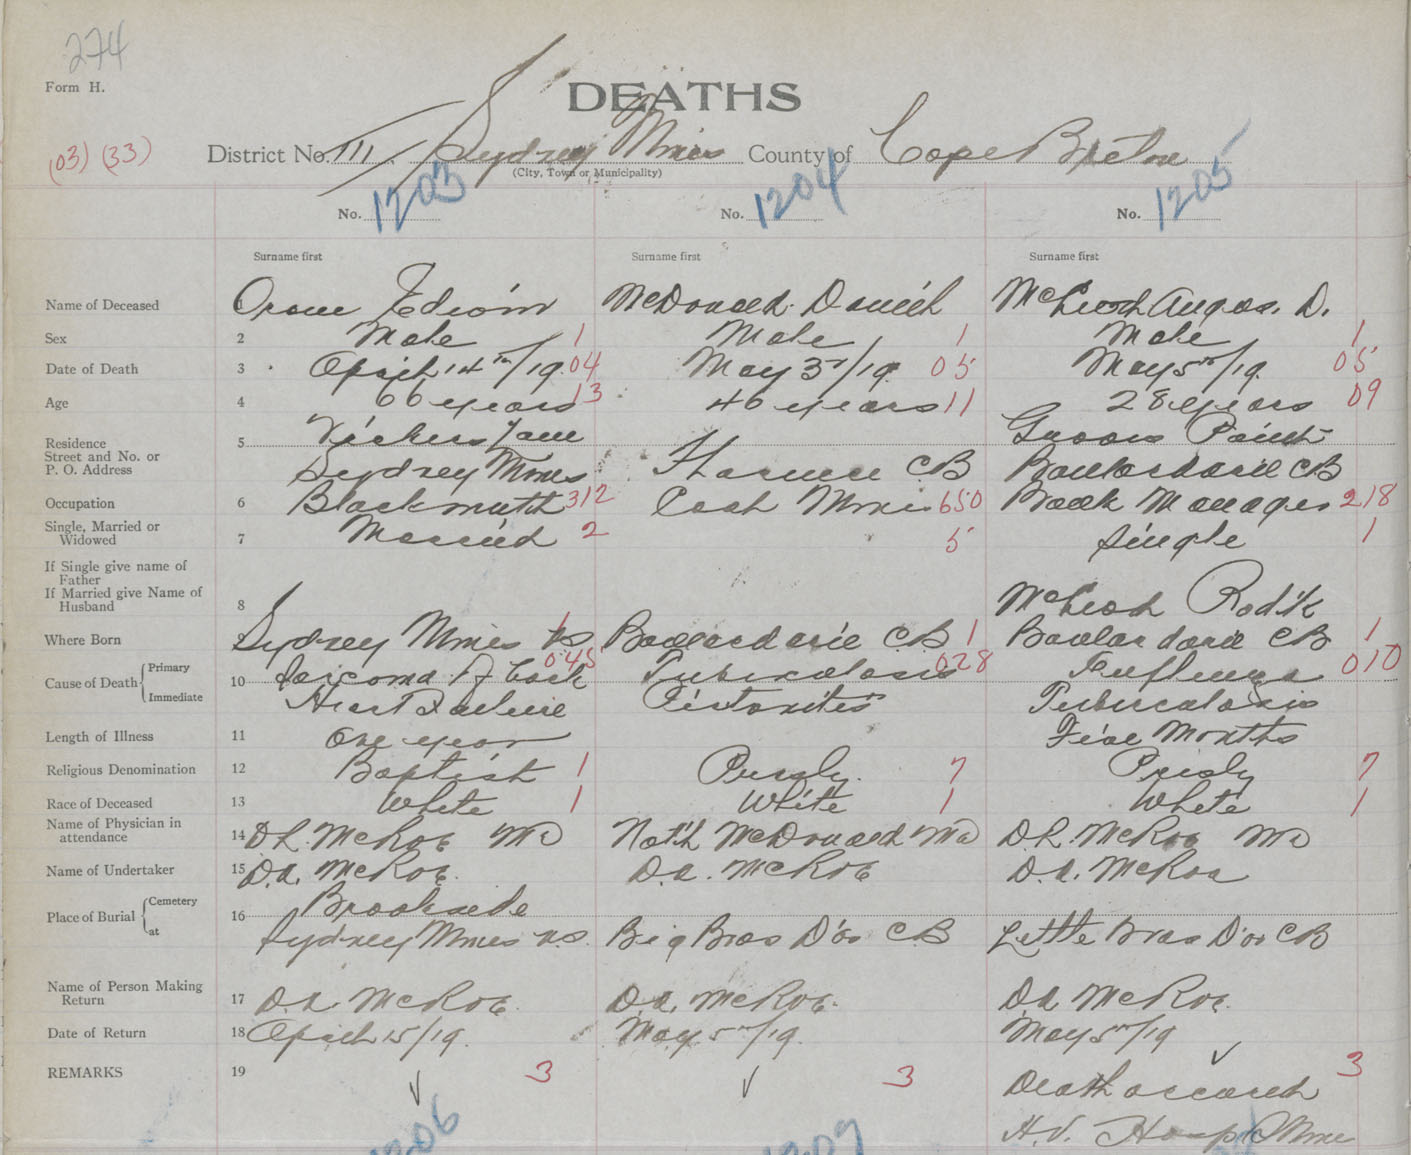 274
Form H.
DEATHS
(03) (33)
District No. III Sydney Mines County of Cape Breton
(City, Town or Municipality)
No. 1203 No. 1204 No. 1205
Surname first Surname first Surname first
Name of Deceased 1 Edwin McDonald Daniel McLeod Angus. D.
Sex 2 Male 1 Male 1 Male 1
Date of Death 3 April 14th/19. 04 May 3rd/19. 05 May 5th/19. 05
Age 4 66 years 13 46 years 11 28 years 09
Residence 5 Vickers Lane Point
Street and No. or
P. O. Address Sydney Mines Florence CB Boulardarie CB
Occupation 6 Blacksmith 312 Coal Miner 650 Bank Manager 218
Single, Married or
Widowed 7 Married 2 5 Single 1
If Single give name of
Father
If Married give Name of
Husband 8 McLeod Rod'k
Where Born Sydney Mines NS 1 Boulardarie CB 1 Boulardarie CB 1
Cause of Death Primary 10 Sarcoma of Back 045 Tuberculosis 028 Influenza 010
Immediate Heart Failure Peritonitis Tuberculosis
Length of Illness 11 One year Five Months
Religious Denomination 12 Baptist 1 Presby. 7 Presby 7
Race of Deceased 13 White 1 White 1 White 1
Name of Physician in
attendance 14 McRae MD McDonald MD McRae MD
Name of Undertaker 15 D.A. McRae. D.A. McRae D.A. McRae
Place of Burial Cemetery 16 Brookside
at Sydney Mines NS. Big Bras D'or CB Little Bras D'or CB
Name of Person Making
Return 17 D.A. McRae. D.A. McRae. D.A. McRae.
Date of Return 18 April 15/19. May 5th/19. May 5th/19
REMARKS 19 3 3 3
Death occurred
1206 1207